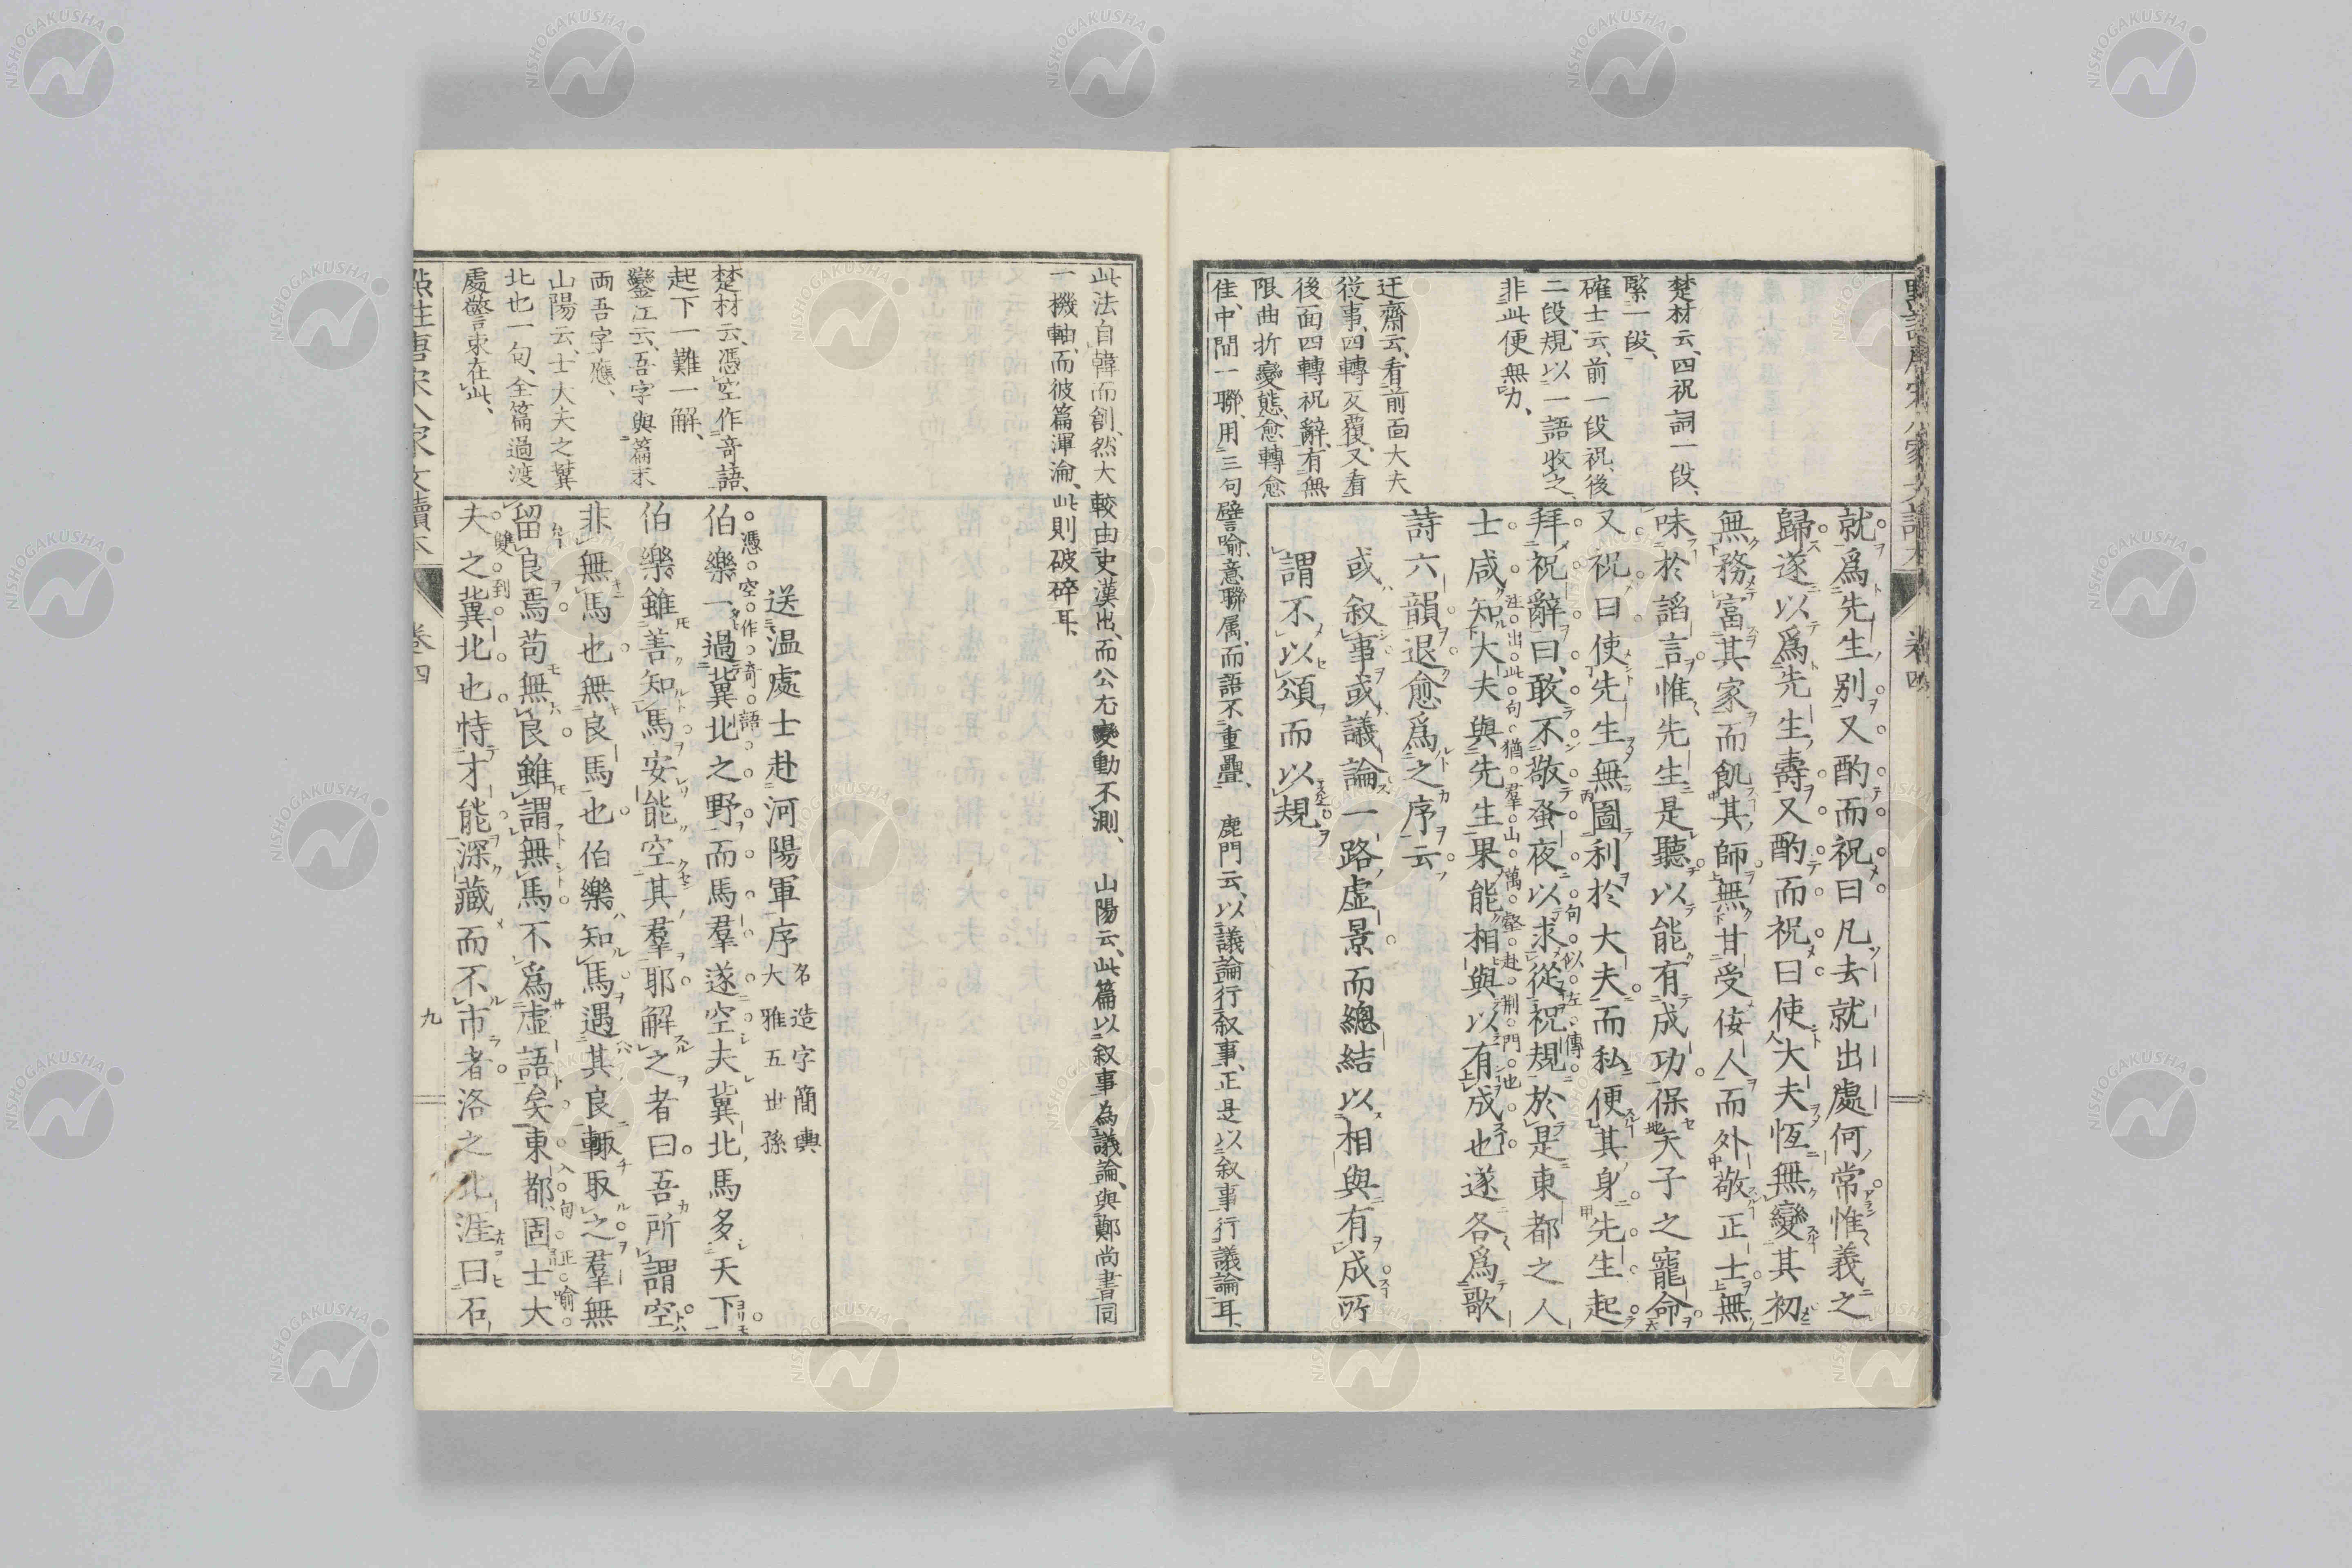 就爲先生別又酌而祝曰凡去就出處何常惟義之
歸遂以爲先生壽又酌而祝曰使大夫恆無變其初
無務富其家而飢其師無甘受佞人而外敬正士無
味於諂言惟先生是聽以能有成功保天子之寵命
又祝曰使先生無圖利於大夫而私便其身先生起
拜祝辭曰敢不敬蚤夜以求從祝規於是東都之人
士咸知大夫與先生果能相與以有成也遂各爲歌
詩六韻退愈爲之序云
或叙事或議論一路虛景而總結以相與有成所
謂不以頌而以規
句似左傳
注出此句猶羣山萬壑赴荊門也
楚材云、四祝詞一段、
緊一段、
確士云、前一段祝、後
二段規、以一語收之、
非此便無力、
迂齋云、看前面大夫
從事、四轉反覆、又看
後面四轉祝辭、有無
限曲折變態、愈轉愈
佳、中間一聯、用三句譬喻、意聯属、而語不重疊、 鹿門云、以議論行叙事、正是以叙事行議論耳、
卷四
此法自韓而創、然大較由史漢出、而公尤變動不測、 山陽云、此篇以叙事為議論、與鄭尚書同
一機軸、而彼篇渾淪、此則破碎耳、
送温處士赴河陽軍序 名造字簡輿
大雅五世孫
憑空作奇語
伯樂一過冀北之野而馬羣遂空夫冀北馬多天下
伯樂雖善知馬安能空其羣耶解之者曰吾所謂空
非無馬也無良馬也伯樂知馬遇其良輙取之羣無
留良焉苟無良雖謂無馬不爲虛語矣東都固士大
入句正喻
雙到
夫之冀北也恃才能深藏而不市者洛之北涯曰石
楚材云、憑空作奇語、
起下一難一解、
鑾江云、吾字與篇末
兩吾字應、
山陽云、士大夫之冀
北也一句、全篇過渡
處、警束在此、
卷四
九
NISHOGAKUSHA